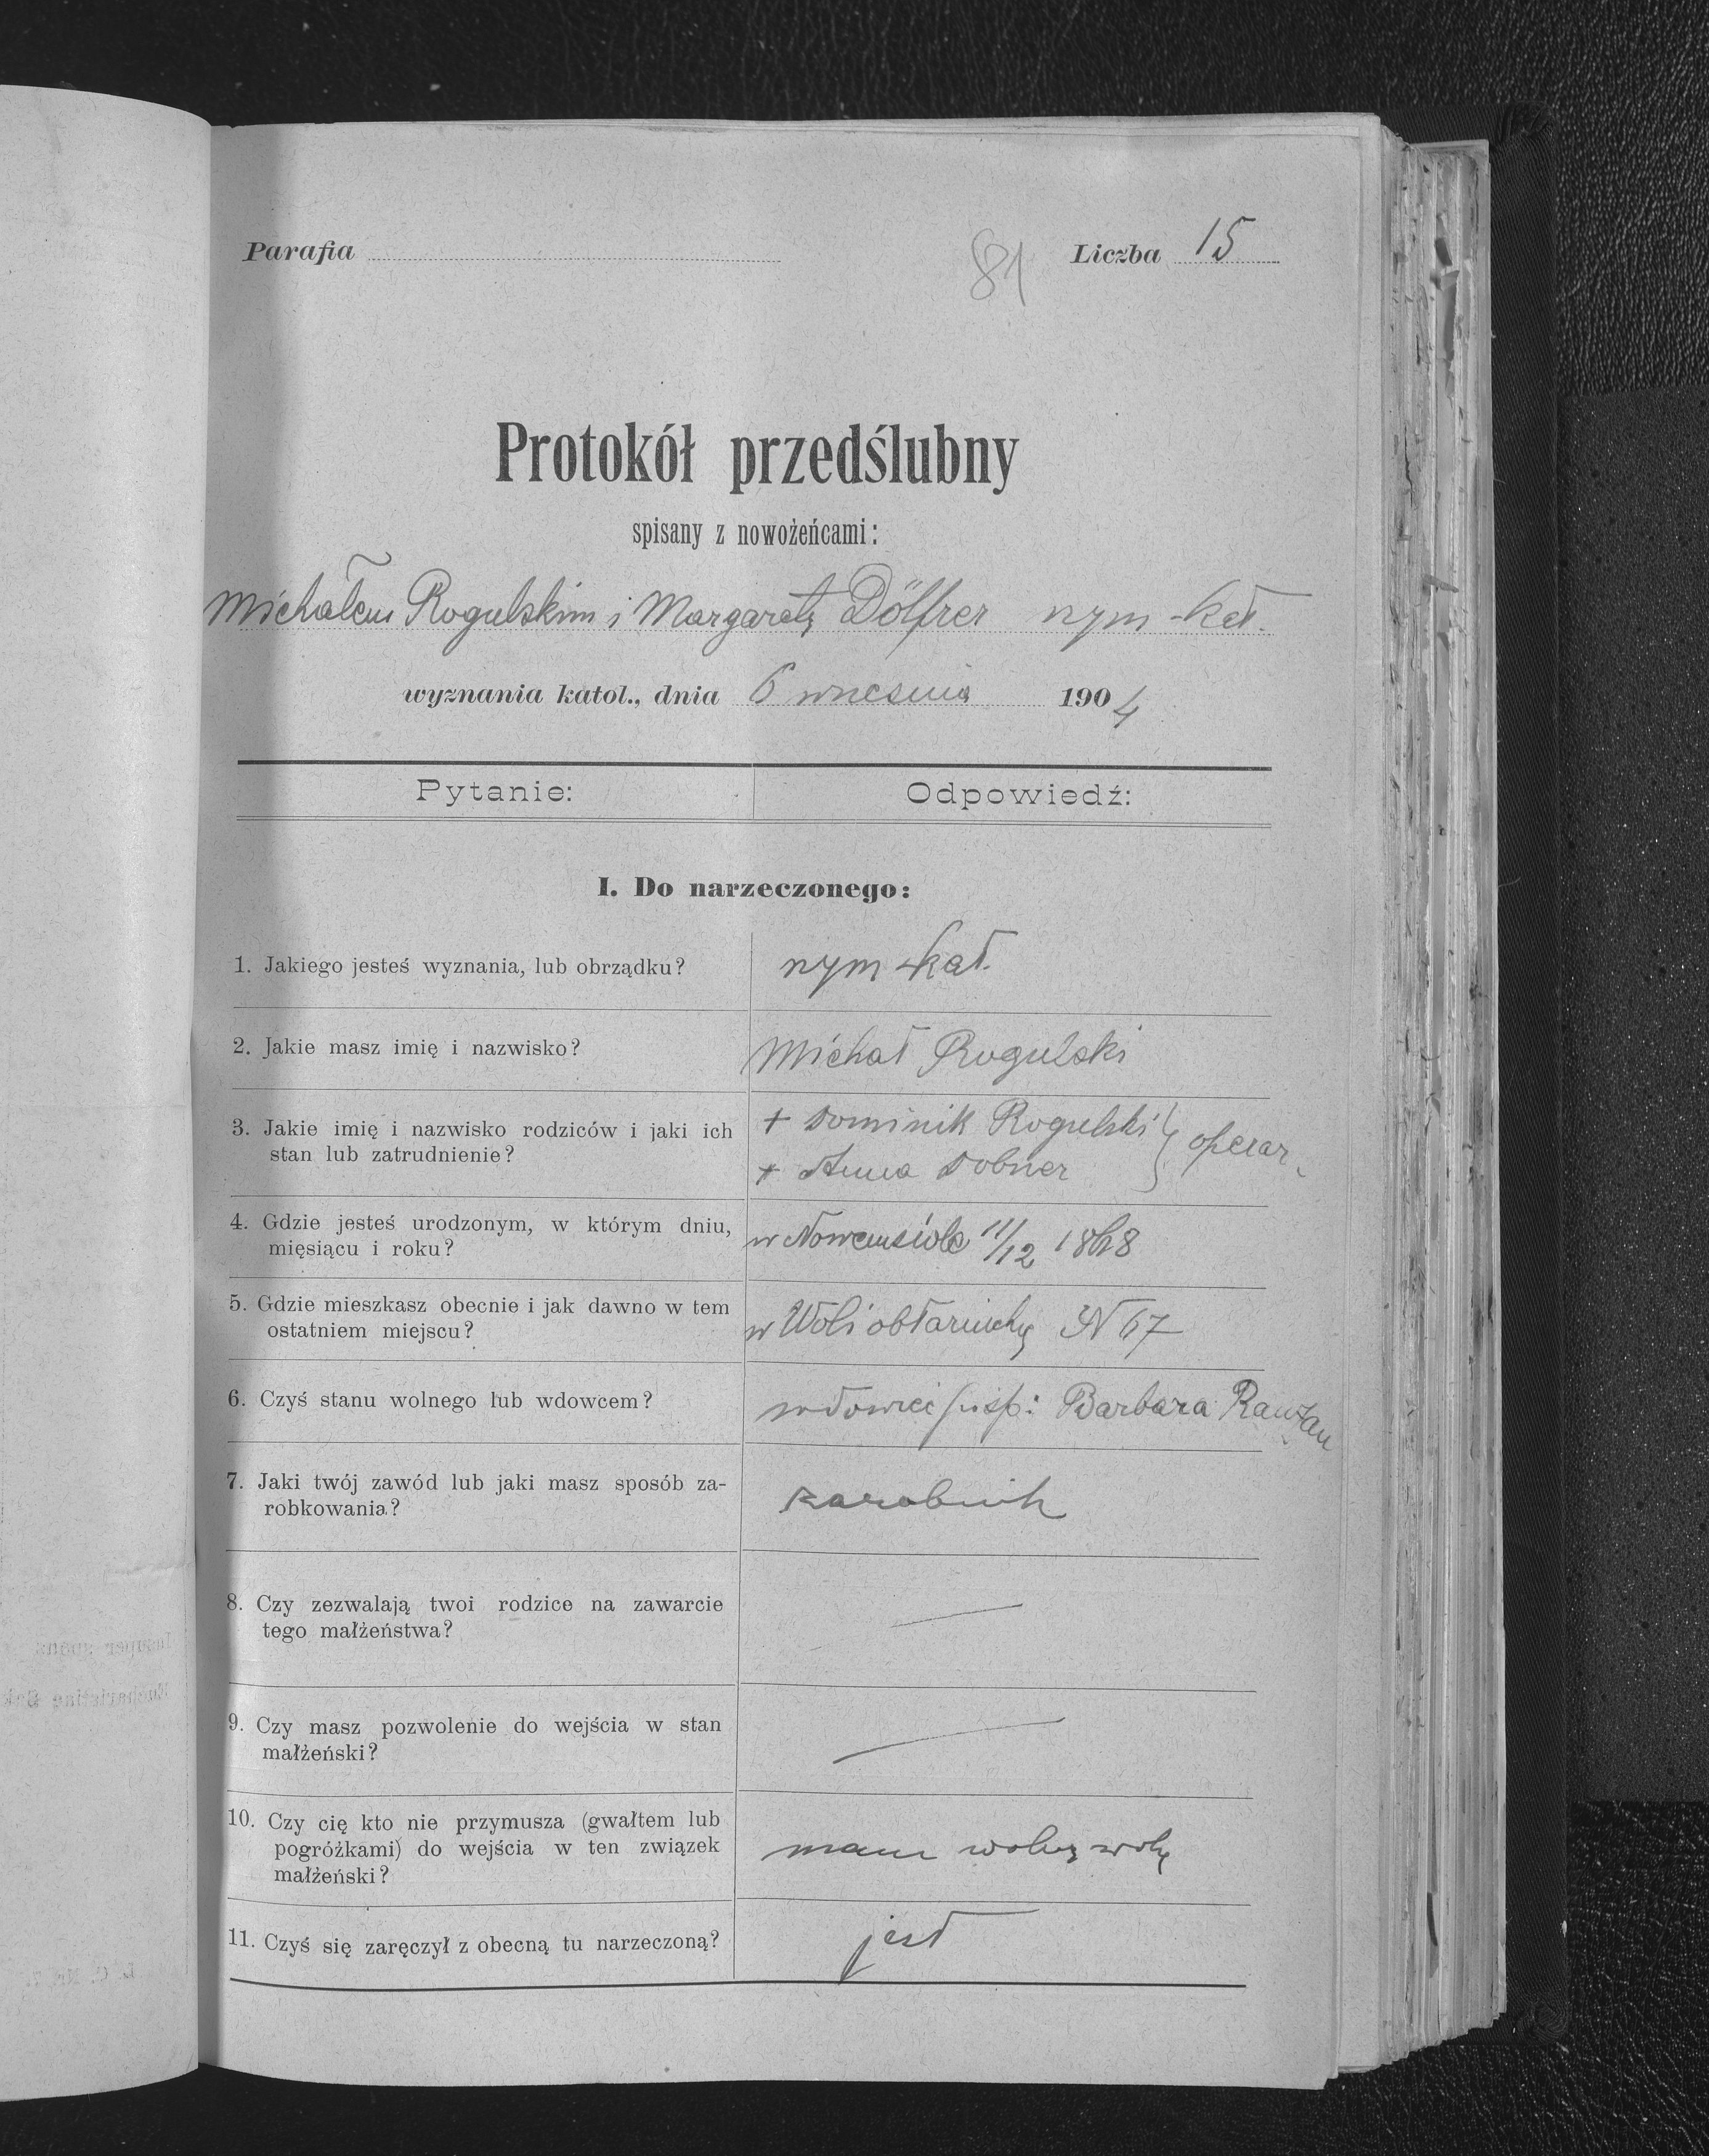 Parafia
81
Liczba 15
Protokół przedślubny
spisany z nowożeńcami:
Michałem Rogulskim i Margaretą Dölfrer rzym-kat.
wyznania katol., dnia 6 wrześnią 1904
Pytanie: Odpowiedź:
I. Do narzeczonego:
1. Jakiego jesteś wyznania, lub obrządku? rzym kat.
2. Jakie masz imię i nazwisko? Michał Rogulski
3. Jakie imię i nazwisko rodziców i jaki ich + Dominik Rogulski
stan lub zatrudnienie? + Anna Dobner
4. Gdzie jesteś urodzonym, w którym dniu, w Nowemsiole 11/12 1868
miesiącu i roku?
5. Gdzie mieszkasz obecnie i jak dawno w tem w Woli N 67
ostatniem miejscu?
6. Czyś stanu wolnego lub wdowcem? wdowiec Barbara
7. Jaki twój zawód lub jaki masz sposób za- zarobnik
robkowania?
8. Czy zezwalają twoi rodzice na zawarcie —
tego małżeństwa?
9. Czy masz pozwolenie do wejścia w stan —
małżeński?
10. Czy cię kto nie przymusza (gwałtem lub
pogróżkami) do wejścia w ten związek mam wolną wolę
małżeński?
11. Czyś się zaręczył z obecną tu narzeczoną? jest